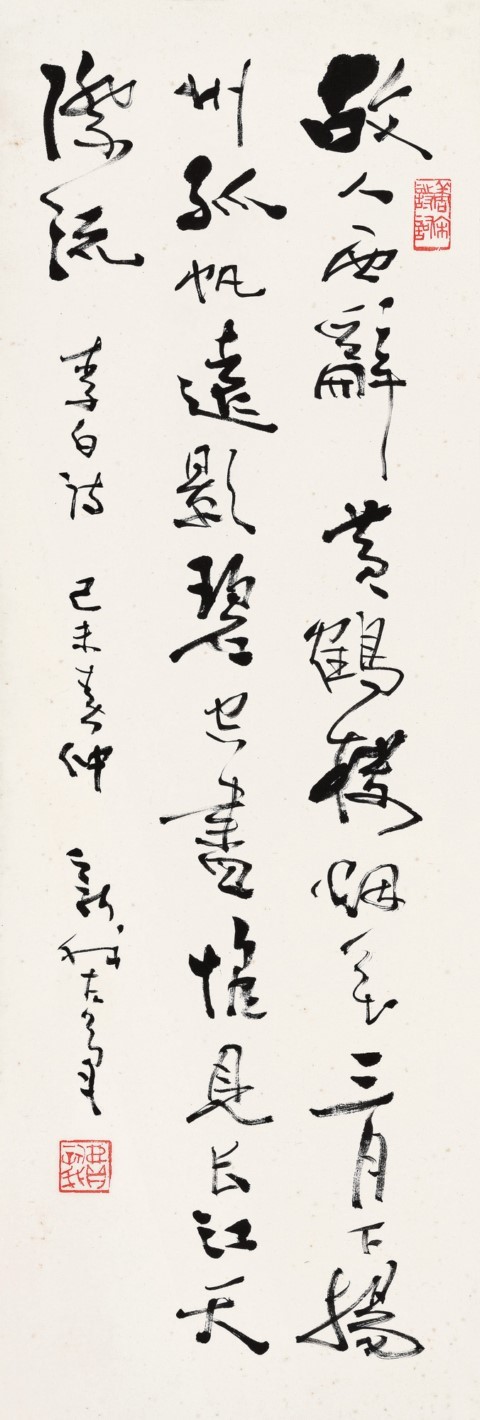 故人西辭黄鶴樓烟花三月下揚
州孤帆遠影碧空盡惟見长江天
際流 李白诗 己未春仲 新我左